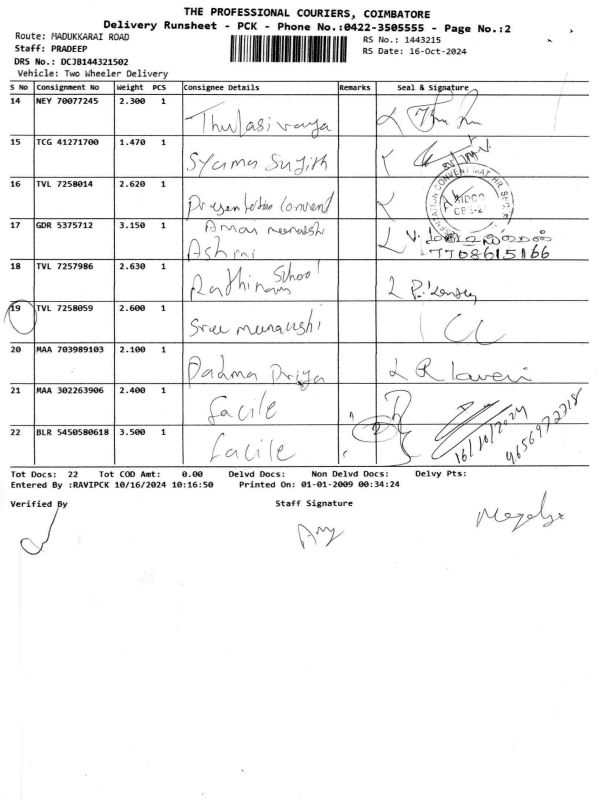 THE PROFESSIONAL COURIERS, COIMBATORE
Delivery Runsheet - PCK - Phone No.:0422-3505555 - Page No.:2
Route: MADUKKARAI ROAD
RS No.: 1443215
Staff: PRADEEP
RS Date: 16-Oct-2024
DRS No.: DCJB144321502
Vehicle: Two Wheeler Delivery
S No Consignment No Weight PCS Consignee Details Remarks Seal & Signature
14 NEY 70077245 2.300 1 Thulasi
15 TCG 41271700 1.470 1 Syama Sujith
16 TVL 7258014 2.620 1 Presentation Convent
17 GDR 5375712 3.150 1 Aman
Ashmi
TT08615166
18 TVL 7257986 2.630 1 Rathinam School
19 TVL 7258059 2.600 1 Sree meenakshi
20 MAA 703989103 2.100 1 Padma Priya
21 MAA 302263906 2.400 1 facile
22 BLR 5450580618 3.500 1 facile
16/10/2024
9656972718
Tot Docs: 22 Tot COD Amt: 0.00 Delvd Docs: Non Delvd Docs: Delvy Pts:
Entered By :RAVIPCK 10/16/2024 10:16:50 Printed On: 01-01-2009 00:34:24
Verified By Staff Signature